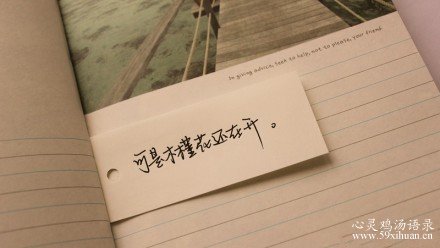 In giving advice, seek to help, not to please, your friend.
可是木槿花还在开。
心灵鸡汤语录
www.59xihuan.cn